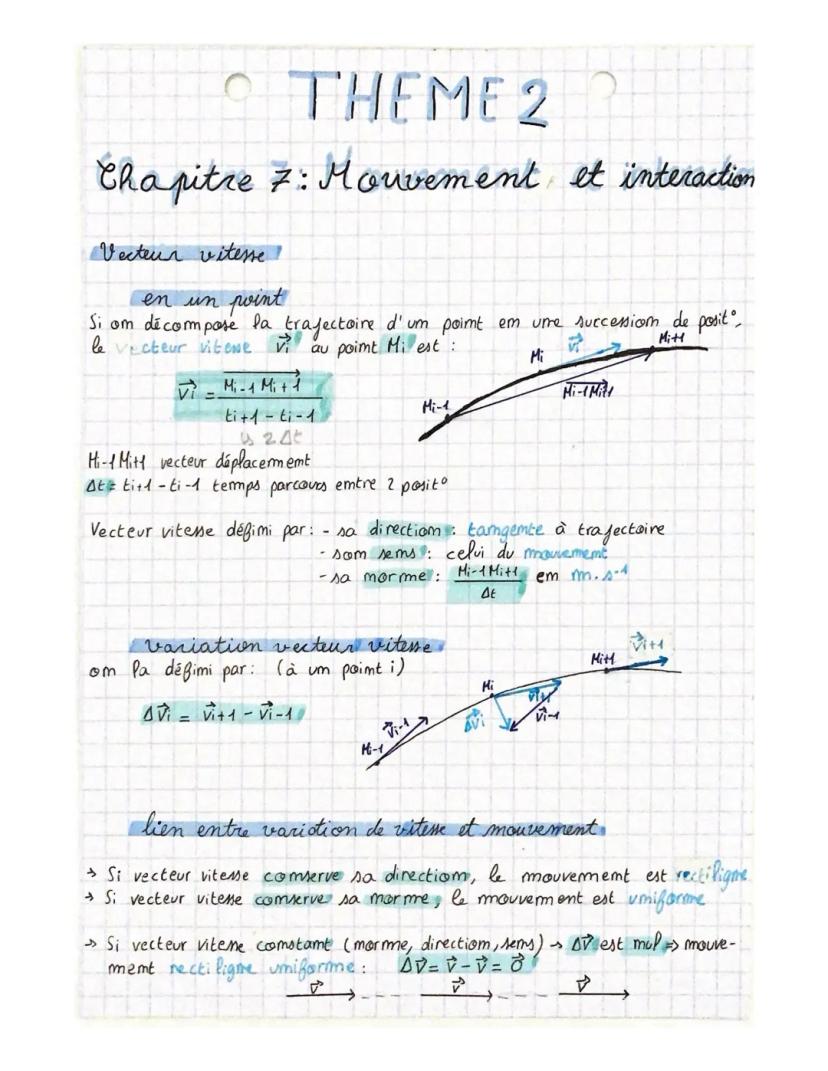 THEME 2
Chapitre 7 : Mouvement et interaction
Vecteur vitesse
en un point
Si on décompose la trajectoire d'un point en une succession de posit°,
le vecteur vitesse v⃗i au point Mi est :
v⃗i = Mi-1 Mi+1 / ti+1 - ti-1
↳ 2 Δt
Mi-1
Mi
v⃗i
Mi+1
Mi-1Mi+1
Mi-1Mi+1 vecteur déplacement
Δt = ti+1 - ti-1 temps parcours entre 2 posit°
Vecteur vitesse défini par : - sa direction : tangente à trajectoire
- son sens : celui du mouvement
- sa norme : Mi-1Mi+1 / Δt en m.s-1
variation vecteur vitesse
on la défini par : (à un point i)
Δv⃗i = v⃗i+1 - v⃗i-1
Mi-1
v⃗i-1
Mi
Δv⃗i
v⃗i+1
v⃗i-1
Mi+1
v⃗i+1
lien entre variation de vitesse et mouvement
→ Si vecteur vitesse conserve sa direction, le mouvement est rectiligne
→ Si vecteur vitesse conserve sa norme, le mouvement est uniforme
→ Si vecteur vitesse constant (norme, direction, sens) → Δv⃗ est nul => mouve-
ment rectiligne uniforme : Δv⃗ = v⃗ - v⃗ = 0⃗
v⃗ v⃗ v⃗